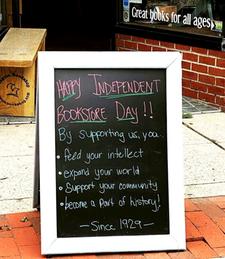 Great books for all ages
HAPPY INDEPENDENT
BOOKSTORE DAY!!
By supporting us, you...
• feed your intellect
• expand your world
• Support your community
• become a part of history!
— Since 1929 —